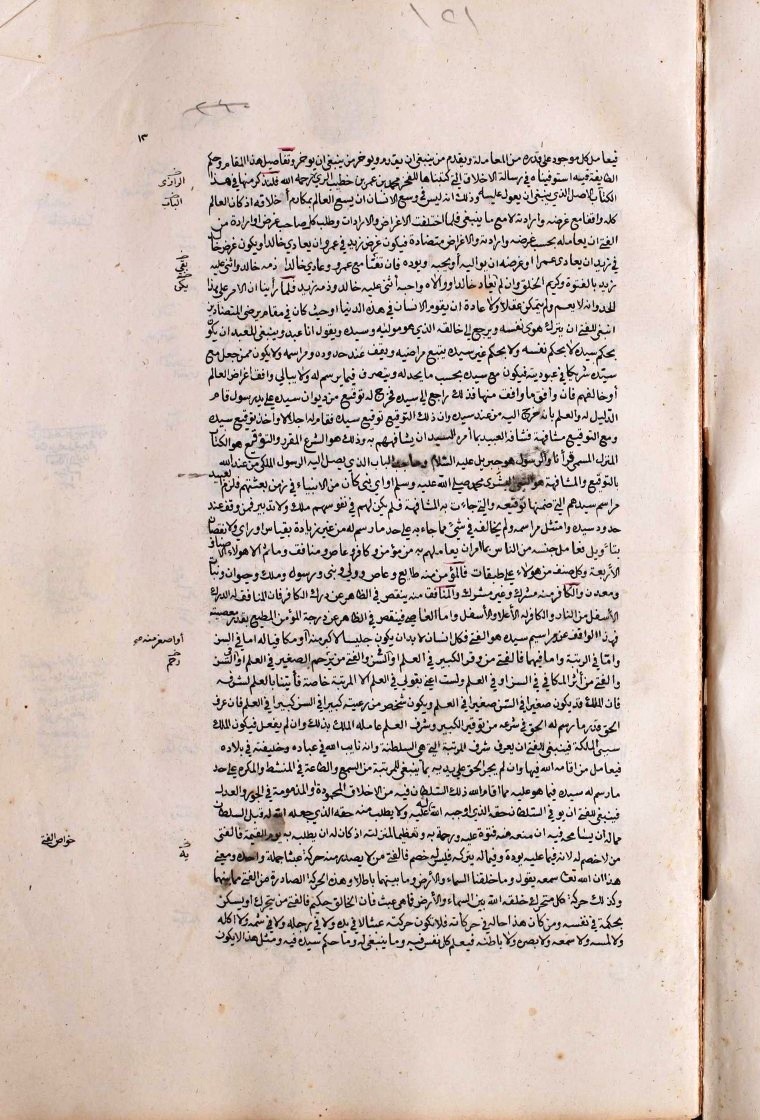 ١٣
فيعامل كل موجود على قدره من المعاملة ويقدم من ينبغي ان يقدم ويؤخر من ينبغي ان يؤخر وتفاصيل هذا المقام وحكم
الطايفة فيه استوفيناه في رسالة الاخلاق التي كتبناها للفخر محمد بن عمر بن خطيب الري رحمه الله فلنذكر منها في هذا
الرازى
الباب
الكتاب الاصل الذي ينبغي ان يعول عليه وذلك انه ليس في وسع الانسان ان يسع العالم بمكارم أخلاقه اذ كان العالم
كله واقفا مع غرضه وارادته لا مع ما ينبغي فلما اختلفت الاغراض والارادات وطلب كل صاحب غرض او ارادة من
الفتى ان يعامله بحسب غرضه وارادته والاغراض متضادة فيكون غرض زيد في عمرو ان يعادي خالدا ويكون غرض خالد
في زيد ان يعادي عمرا او غرضه ان يواليه أو يحبه ويوده فان تفتا مع عمرو وعادي خالدا ذمه خالد واثنى عليه
زيد بالفتوة وكريم الخلق وان لم يعاد خالدا ووالاه واحبه أثنى عليه خالد وذمه زيد فلما رأينا ان الامر على هذا
الحد وانه لا يعم ولم يتمكن عقلا ولا عادة ان يقوم الانسان في هذه الدنيا او حيث كان في مقام يرضى المتضادين
انبغى للفتى ان يترك هوى نفسه ويرجع الى خالقه الذي هو مولاه وسيده ويقول انا عبد وينبغي للعبد ان يكون
بحكم سيده لا بحكم نفسه ولا بحكم غير سيده يتبع مراضيه ويقف عند حدوده ومراسمه ولا يكون ممن جعل مع
سيده شريكا في عبوديته فيكون مع سيده بحسب ما يحد له ويتصرف فيما يرسم له ولا يبالي وافق اغراض العالم
أو خالفهم فان وافق ما وافق منها فذلك راجع الى سيده فخرج له توقيع من ديوان سيده على يد رسول قام
الدليل له والعلم بانه خرج اليه من عند سيده وان ذلك التوقيع توقيع سيده فقام له اجلالا واخذ توقيع سيده
ومع التوقيع مشافهة فشافه العبيد بما أمره السيد ان يشافههم به وذلك هو الشرع المقرر والتوقيع هو الكتاب
المنزل المسمى قرأنا والرسول هو جبريل عليه السلام وحاجب الباب الذي يصل اليه الرسول الملكي من عند الله
بالتوقيع والمشافهة هو النبي البشرى محمد صلى الله عليه وسلم او اي نبي كان من الانبياء في زمن بعثتهم فلزم العبيد
مراسم سيدهم التي ضمنها توقيعه والتي جاءت به المشافهة فلم يكن لهم في نفوسهم ملك ولا تدبير فمن وقف عند
حدود سيده وامتثل مراسمه ولم يخالفه في شئ مما جاءه به على حد ما رسم له من غير زيادة بقياس او راي ولا نقصان
بتاويل فعامل جنسه من الناس بما امر ان يعاملهم به من مؤمن وكافر وعاص ومنافق وما ثم الا هولاء الاصناف
الأربعة وكل صنف من هولاء على طبقات فالمؤمن منه طايع وعاص وولى ونبى ورسول وملك وحيوان ونبات
ومعدن والكافر منه مشرك وغير مشرك والمنافق منه ينقص في الظاهر عن درك الكافر فان المنافق له الدرك
الأسفل من النار والكافر له الأعلا والأسفل واما العاصي فينقص في الظاهر عن درجة المؤمن المطيع بقدر معصيته
فهذا الواقف عند مراسيم سيده هو الفتى فكل انسان لا بد ان يكون جليسا لاكبر منه او مكافيا له اما في السن
او اصغر منه
واما في الرتبة واما فيهما فالفتى من وقر الكبير في العلم أو السن والفتى من رحم الصغير في العلم او السن
والفتى من آثر المكافي في السن او في العلم ولست اعني بقولي في العلم الا المرتبة خاصة فأتينا بالعلم لشرفه
فان الملك قد يكون صغيرا في السن صغيرا في العلم ويكون شخص من رعيته كبيرا في السن كبيرا في العلم فان عرف
الحق قدر ما رسم له الحق في شرعه من توقير الكبير وشرف العلم عامله الملك بذلك وان لم يفعل فيكون الملك
سيئ الملكة فينبغي للفتى ان يعرف شرف المرتبة التي هي السلطنة وانه نايب الله في عباده وخليفته في بلاده
فيعامل من اقامه الله فيها وان لم يجر الحق على يديه بما ينبغي للمرتبة من السمع والطاعة في المنشط والمكره على حد
ما رسم له سيده فيما هو عليه مما اقام الله ذلك السلطان فيه من الاخلاق المحمودة او المذمومة في الجور والعدل
فينبغي للفتى ان يوفى السلطان حقه الذي اوجبه الله له عليه ولا يطلب منه حقه الذي جعله الله له قبل السلطان
مما له ان يسامحه فيه ان منعه منه فتوة عليه ورحمة به وتعظيما لمنزلته اذ كان له ان يطلبه به يوم القيمة فالفتى
خواص الفتى
من لا خصم له لانه فيما عليه يوده وفيما له يتركه فليس له خصم فالفتى من لا يصدر منه حركة عبثا جملة واحدة ومعنى
هذا ان الله تعالى سمعه يقول وما خلقنا السماء والأرض وما بينهما باطلا وهذه الحركة الصادرة من الفتى مما بينهما
وكذلك حركة كل متحرك خلقه الله بين السماء والأرض فما هي عبث فان الخالق حكيم فالفتى من يتحرك او يسكن
بحكمة في نفسه ومن كان هذا حاله في حركاته فلا تكون حركته عبثا لا في يده ولا في رجله ولا في شمه ولا اكله
ولا لمسه ولا سمعه ولا بصره ولا باطنه فيعلم كل نفس فيه وما ينبغي له وما حكم سيده فيه ومثل هذا لا يكون